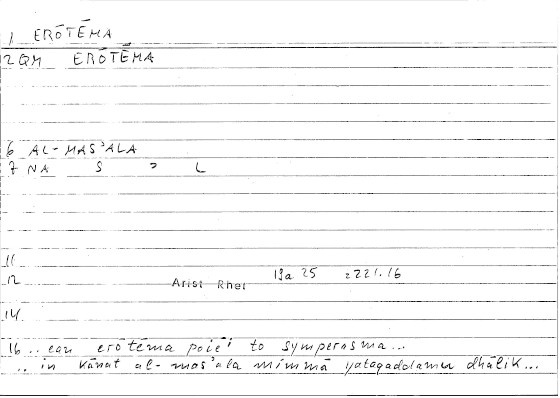 1 ERŌTĒMA
2 QM ERŌTĒMA
6 AL-MASʾALA
7 NA S ʾ L
11
12 Arist Rhet 19a 25 = 221.16
14
16 .. ean erōtēma poiēi to symperasma...
.. in kānat al-masʾala mimmā yataqaddamu dhālik...